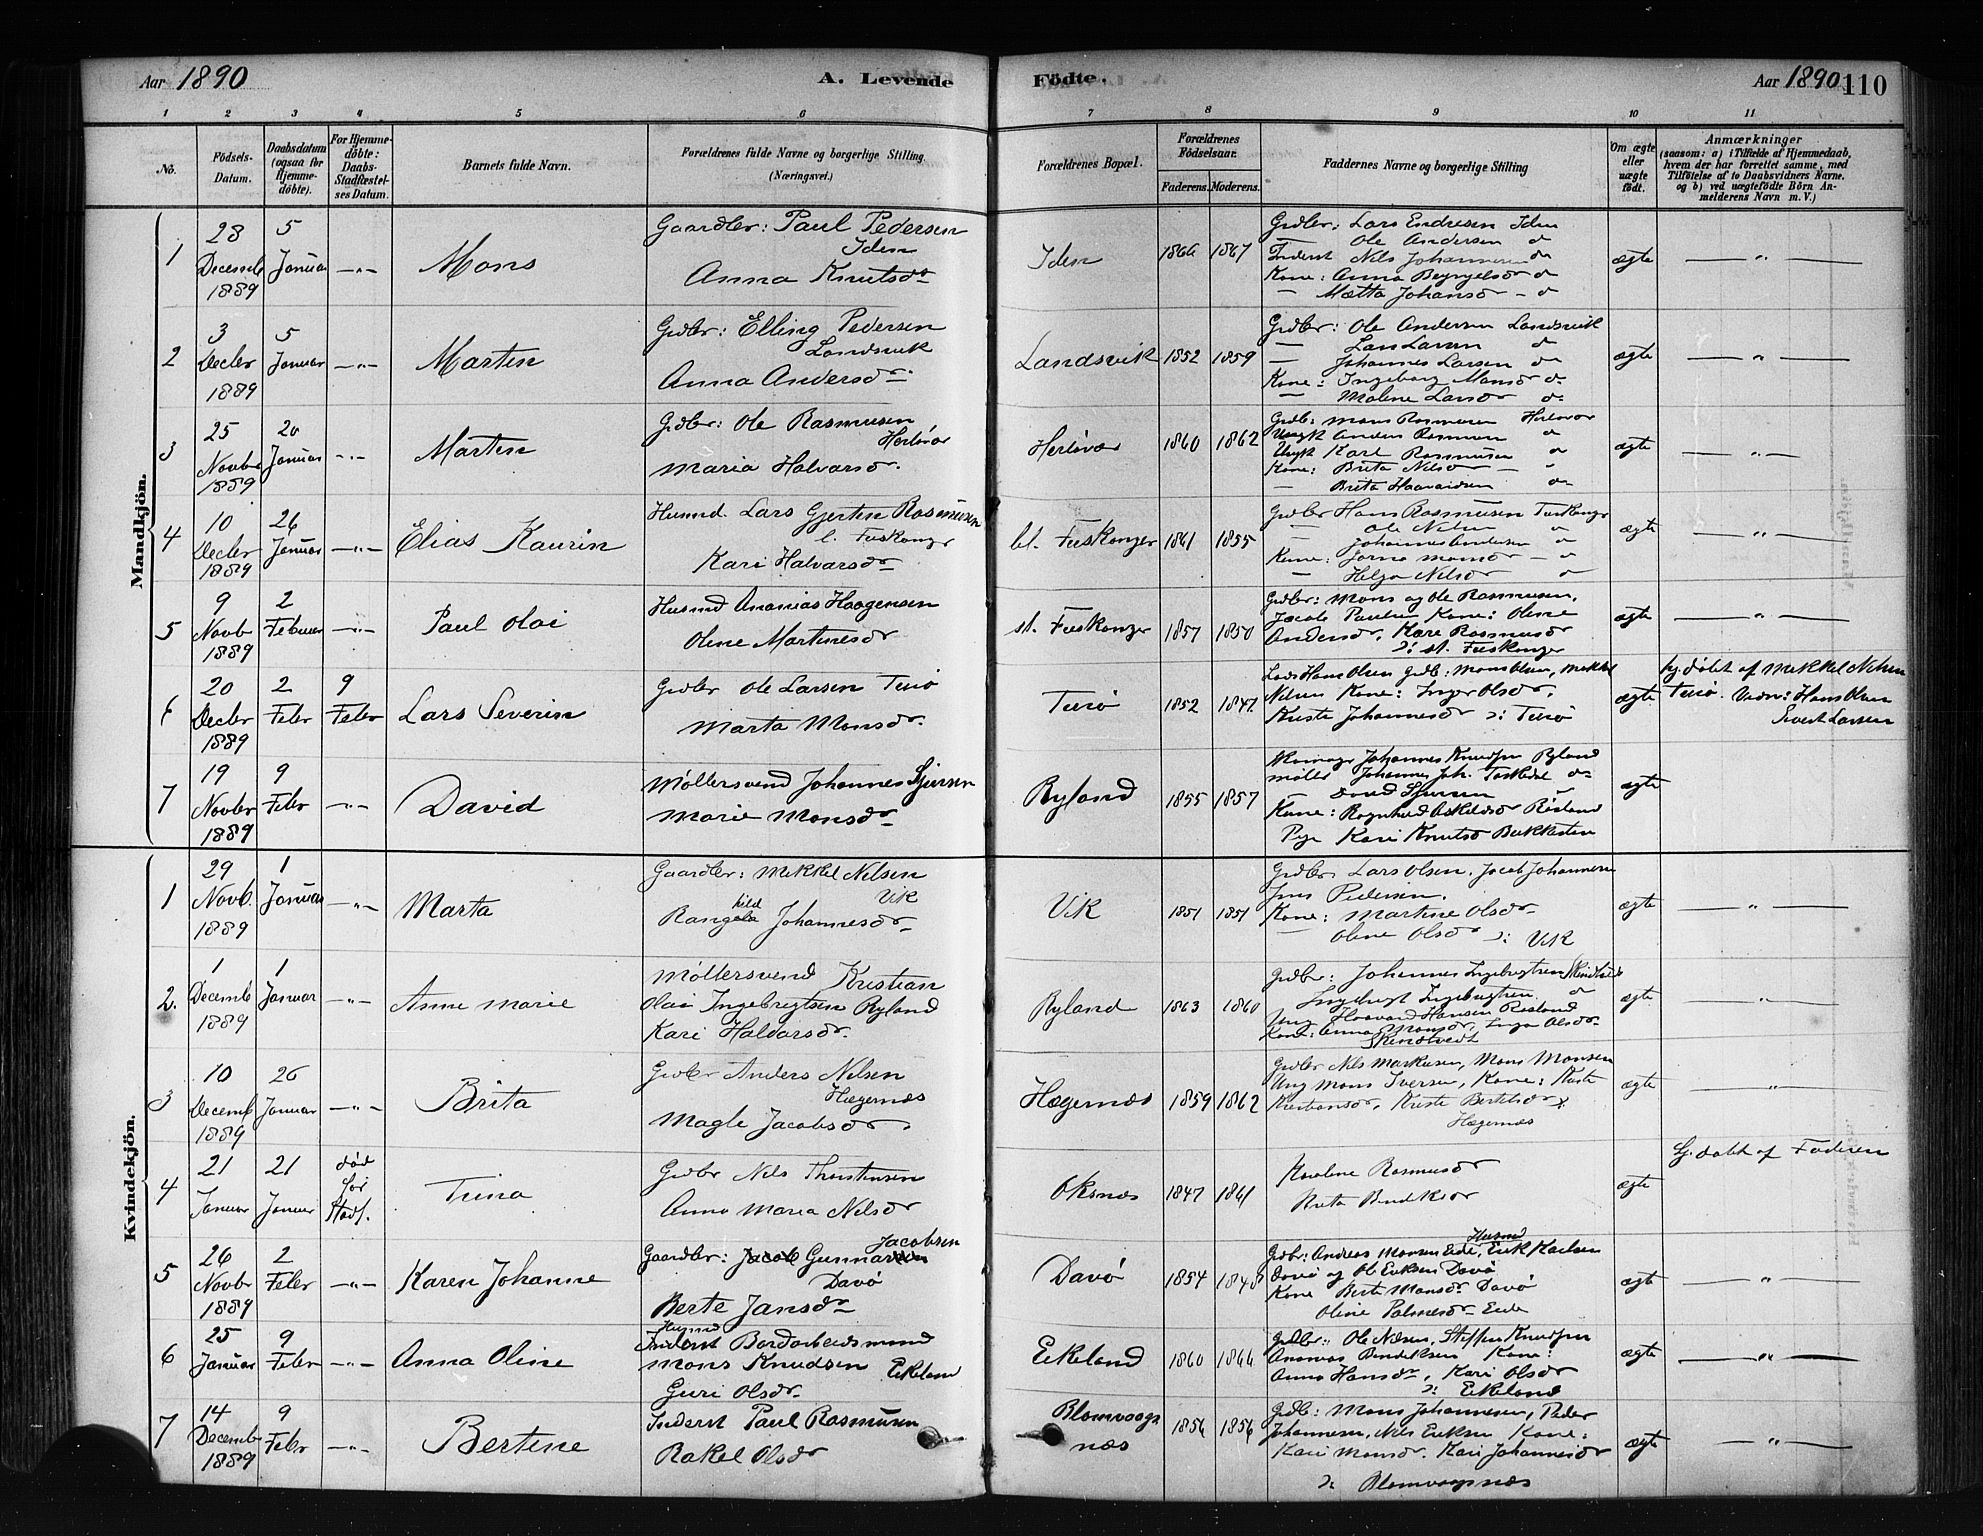 Aar 1890 A. Levende Födte. Aar 1890 110
1 2 3 4 5 6 7 8 9 10 11
No. Födsels-Datum. Daabsdatum (ogsaa for Hjemmedöbte). For Hjemmedöbte: Daabs-Stadfæstelses Datum. Barnets fulde Navn. Forældrenes fulde Navne og borgerlige Stilling. (Næringsvei.) Forældrenes Bopæl. Forældrenes Födselsaar. Faderens. Moderens. Faddernes Navne og borgerlige Stilling Om ægte eller uægte födt. Anmærkninger (saasom: a) i Tilfælde af Hjemmedaab, hvem der har forrettet samme, med Tilföielse af to Daabsvidners Navne, og b) ved uægtefödte Börn Anmelderens Navn m. V.)
Mandkjön.
1 28 Decemb 1889 5 Januar -"- Mons
Gaardbr: Paul Pedersen
Iden
Anna Knutsdr
Iden 1866 1867
Grdbr: Lars Endresen Iden
— Ole Andersen do
Inderst Nils Johannesen do
Kone: Anna Brynjelsdr do
— Mætta Johansdr - do
ægte — " —
2 3 Decbr 1889 5 Januar -"- Martin
Grdbr: Elling Pedersen
Landsvik
Anna Andersdr
Landsvik 1852 1859
Grdbr: Ole Andersen Landsvik
— Lars Larsen do
— Johannes Larsen do
Kone: Ingeborg Monsdr do
— Malene Larsdr do
ægte — " —
3 25 Novbr 1889 20 Januar -"- Martin
Grdbr: Ole Rasmusen
Herløvær
Maria Halvarsdr.
Herløvær 1860 1862
Grdb: Mons Rasmusen Herløvær
Ungk Anders Rasmusen do
Ungk Karl Rasmusen do
Kone: Brita Nilsdr — "
— Brita Haavardsen do
ægte — " —
4 10 Decbr 1889 26 Januar -"- Elias Kaurin
Husmd. Lars Gjertin Rasmusen
l. Fuskanger
Kari Halvarsdr
lil. Fuskanger 1861 1855
Grdbr Hans Rasmusen Fuskanger
— Ole Nilsen do
— Johannes Andersen do
Kone: Jorna Monsdr — do
— Helga Nilsdr do
ægte — " —
5 9 Novb 1889 2 Februar -"- Paul Olai
Husmd Ananias Haagensen
Oline Martinesdr
st. Fuskanger 1857 1850
Grdbr: Mons og Ole Rasmusen,
Jacob Paulsen, Kone: Oline
Andersdr, Kare Rasmusdr
ɔ: st. Fuskanger
ægte — " —
6 20 Decbr 1889 2 Febr 9 Febr Lars Severin
Grdbr Ole Larsen Turø
Marta Monsdr.
Turø 1852 1847.
Lods Hans Olsen Grdb: Mons Olsen, Mikkel
Nilsen Kone: Inger Olsdr,
Kriste Johannesdr ɔ: Turø
ægte
hj. døbt af Mikkel Nilsen
Turø. Vidn: Hans Olsen
Sivert Larsen
7 19 Novbr 1889 9 Febr -"- David
Møllersvend Johannes Sjursen
Marie Monsdr
Ryland 1855 1857
Skomager Johannes Knudsen Ryland
Møller Johannes Joh. Toskedal do
— David Sjursen "
Kone: Ragnhild Askildsdr Røsland
Pige Kari Knutsdr Bakkesten
ægte
Kvindekjön.
1 29 Novb. 1889 1 Januar -"- Marta
Gaardbr: Mikkel Nilsen
Vik
Rangela hild Johannesdr
Vik 1851 1851
Grdbr: Lars Olsen, Jacob Johannesen
Jens Pedersen.
Kone: Martine Olsdr
— Oline Olsdr ɔ: Vik
ægte — " —
2. 1 Decemb 1889 1 Januar -"- Anne Marie
Møllersvend Kristian
Olai Ingebrigtsen Ryland
Kari Halvarsdr.
Ryland 1863 1860
Grdbr: Johannes Ingebrigtsen
Ingebrigt Ingebrigtsen do
Ung Haavard Hansen Røsland
Kone: Anna Monsdr, Inga Olsdr
ægte — " —
3 10 Decemb 1889 26 Januar -"- Brita
Grdbr Anders Nilsen
Hægernæs
Magle Jacobsdr
Hægernæs 1859 1862
Grdbr Nils Markusen, Mons Monsen
Ung Mons Iversen, Kone: Kriste
Kristiansdr, Kriste Bertelsdr ɔ:
Hægernæs
ægte — " —
4 21 Januar 21 Januar død før Stadf. Trina
Grdbr Nils Thorstensen
Anna Maria Nilsdr
Oksnæs 1847 1861
Karoline Rasmusdr
Brita Bendiksdr
ægte
hj. døbt af Faderen
5 26 Novb 1889 2 Febr -"- Karen Johanne
Gaardbr: Jacob Gunnarsen Jacobsen
Davø
Berte Jansdr
Davø 1854 1848
Husmd
Grdbr: Andreas Monsen Eide, Erik Karlsen
Davø og Ole Eriksen Davø
Kone Berte Monsdr Davø
Oline Palmesdr Eide
ægte — " —
6 25 Januar 9 Febr -"- Anna Oline
Husmd
Inderst Bordarbeidsmand
Mons Knudsen Eikeland
Guri Olsdr
Eikeland 1860 1866
Grdbr: Ole Nilsen, Steffen Knudsen
Ananias Bendiksen Kone:
Anna Hansdr, Kari Olsdr
ɔ: Eikeland
ægte — " —
7 14 Decemb 1889 9 Febr -"- Bertine
Inderst Paul Rasmusen
Rakel Olsdr
Blomvaagnæs 1856 1856
Grdb: Mons Johannesen, Peder
Johannesen, Nils Eriksen Kone:
Kari Monsdr, Kari Johannesdr
ɔ: Blomvaagnæs
ægte — " —